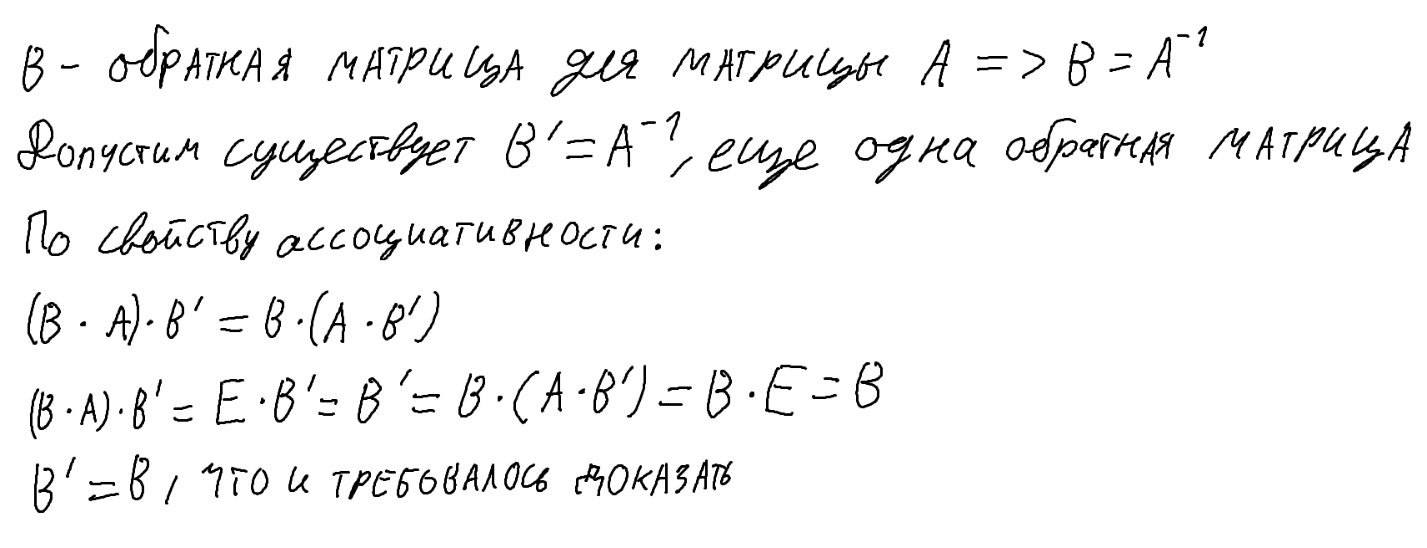 B - обратная матрица для матрицы A => B = A⁻¹
Допустим существует B' = A⁻¹, еще одна обратная матрица
По свойству ассоциативности:
(B · A) · B' = B · (A · B')
(B · A) · B' = E · B' = B' = B · (A · B') = B · E = B
B' = B, что и требовалось доказать